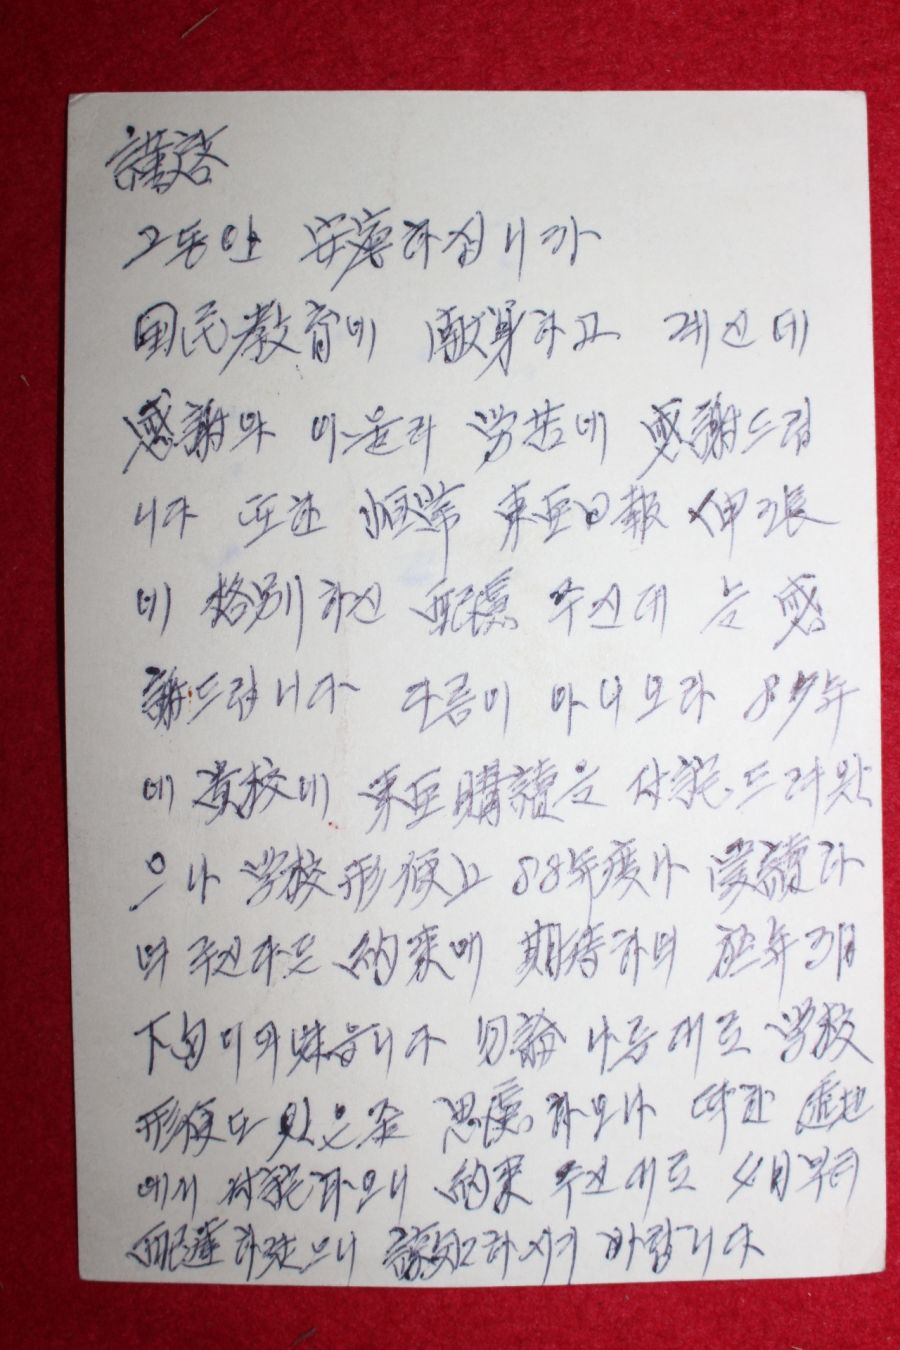 謹啓
그동안 安寧하십니까
国民教育에 献身하고 계신데
感謝와 아울러 労苦에 感謝드립
니다 또한 恒常 東亜日報 伸張
에 格別하신 配慮 주신데 는 感
謝드립니다 다름이 아니오라 87年
에 貴校에 東亜購読을 付託드려왔
으나 学校形便上 88年度나 受読하
여 주신다는 約束에 期待하며 於年 3月
下旬이 와 있습니다 勿論 나름대로 学校
形便도 있을 줄 思慮하오나 또한
에서 付託하오니 約束 주신대로 4月부터
配達하겠으니 諒知하시기 바랍니다